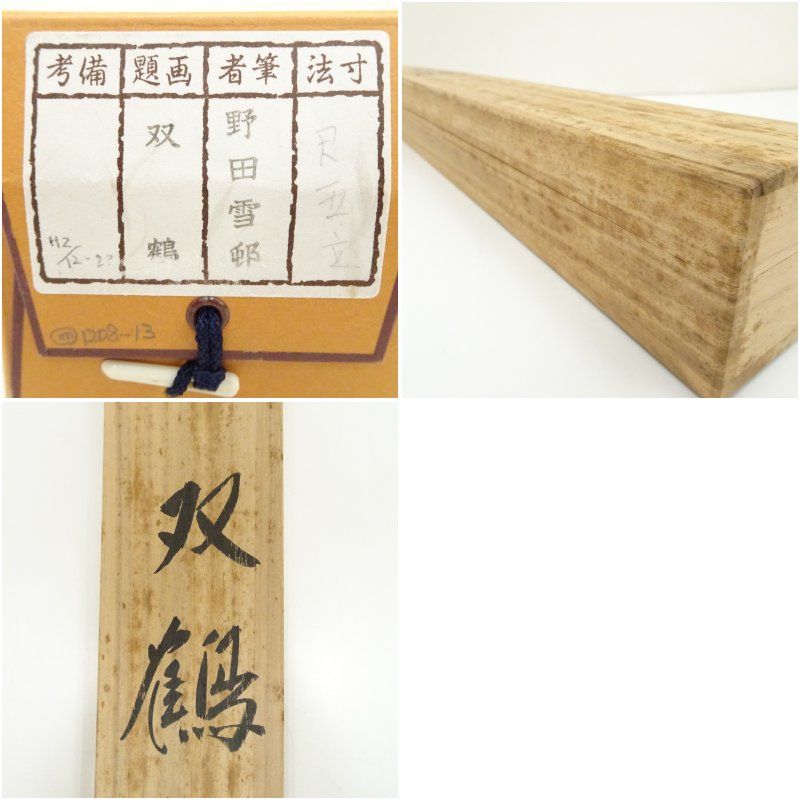 寸法
尺五立
筆者
野田雪邨
画題
双鶴
備考
H2
12-22
m 1208-13
双鶴